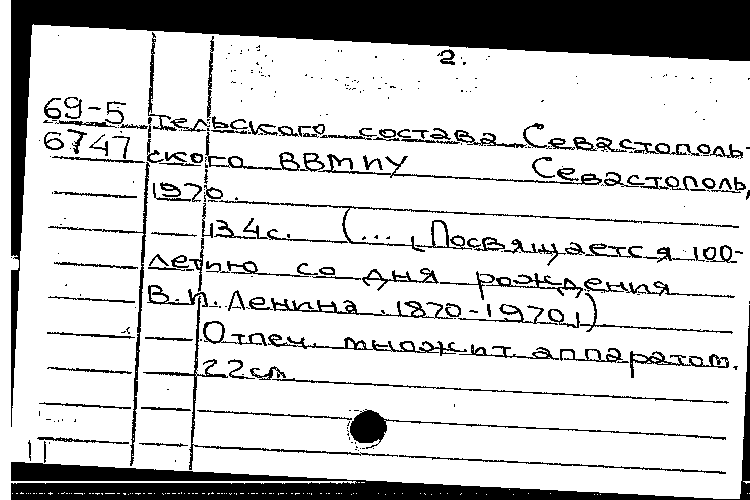 2.
69-5 тельского состава Севастополь-
6747 ского ВВМИУ Севастополь,
1970.
134с. (... [Посвящается 100-
летию со дня рождения
В.И. Ленина. 1870-1970])
Отпеч. множит. аппаратом.
22см